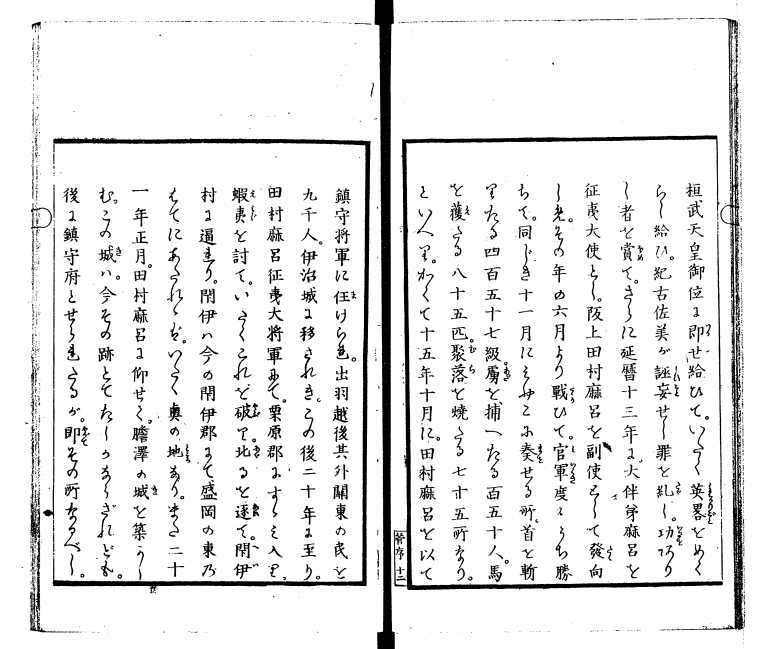 桓武天皇御位に即せ給ひて。いたく英畧をめぐ
らし給ひ。紀古佐美が誣妄せし罪を糺し。功あり
し者を賞て。さらに延暦十三年に大伴弟麻呂を
征夷大使とし。阪上田村麻呂を副使として發向
しむ。その年の六月より戰ひて。官軍度々うち勝
ちて。同じき十一月にみやこに奏せる所。首を斬
りたる四百五十七級。虜を捕へたる百五十人。馬
を獲たる八十五匹。聚落を燒たる七十五所なり。
といへり。かくて十五年十月に。田村麻呂を以て
鎮守将軍に任けらる。出羽越後其外關東の民を
九千人。伊治城に移されき。この後二十年に至り。
田村麻呂征夷大将軍にて。栗原郡にすゝみ入り。
蝦夷を討て。いたくこれを破り北るを逐て。閇伊
村に逼れり。閇伊は今の閇伊郡にて盛岡の東乃
はてにあたれゝば。いたく奥の地なり。また二十
一年正月。田村麻呂に仰せて。膽澤の城を築かし
む。この城は今その跡とてたしかならざれども。
後に鎮守府とせられたるが。即その所なるべし。
菅序 十二